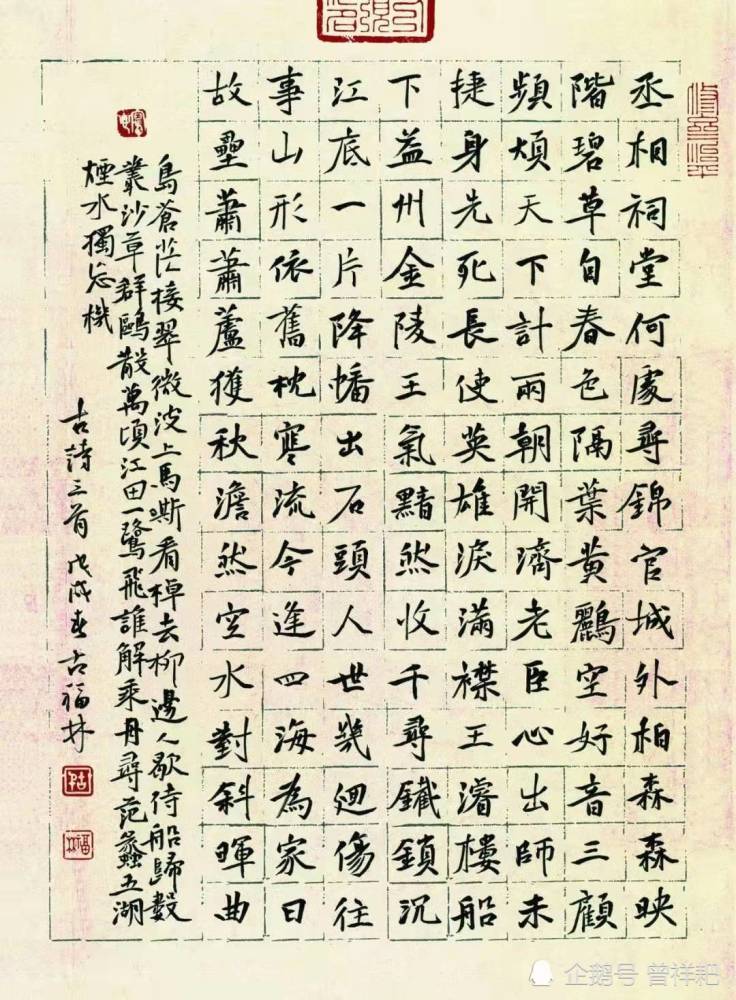 丞相祠堂何處尋錦官城外柏森森映
階碧草自春色隔葉黄鸝空好音三顧
頻煩天下計兩朝開濟老臣心出師未
捷身先死長使英雄淚滿襟王濬樓船
下益州金陵王氣黯然收千尋鐵鎖沉
江底一片降幡出石頭人世幾迴傷往
事山形依舊枕寒流今逢四海為家日
故壘蕭蕭蘆獲秋澹然空水對斜暉曲
島蒼茫接翠微波上馬嘶看棹去柳邊人歇待船歸數
叢沙草群鷗散萬頃江田一鷺飛誰解乘舟尋范蠡五湖
煙水獨忘機
古詩三首戊戌春古福林
企鹅号 曾祥耙